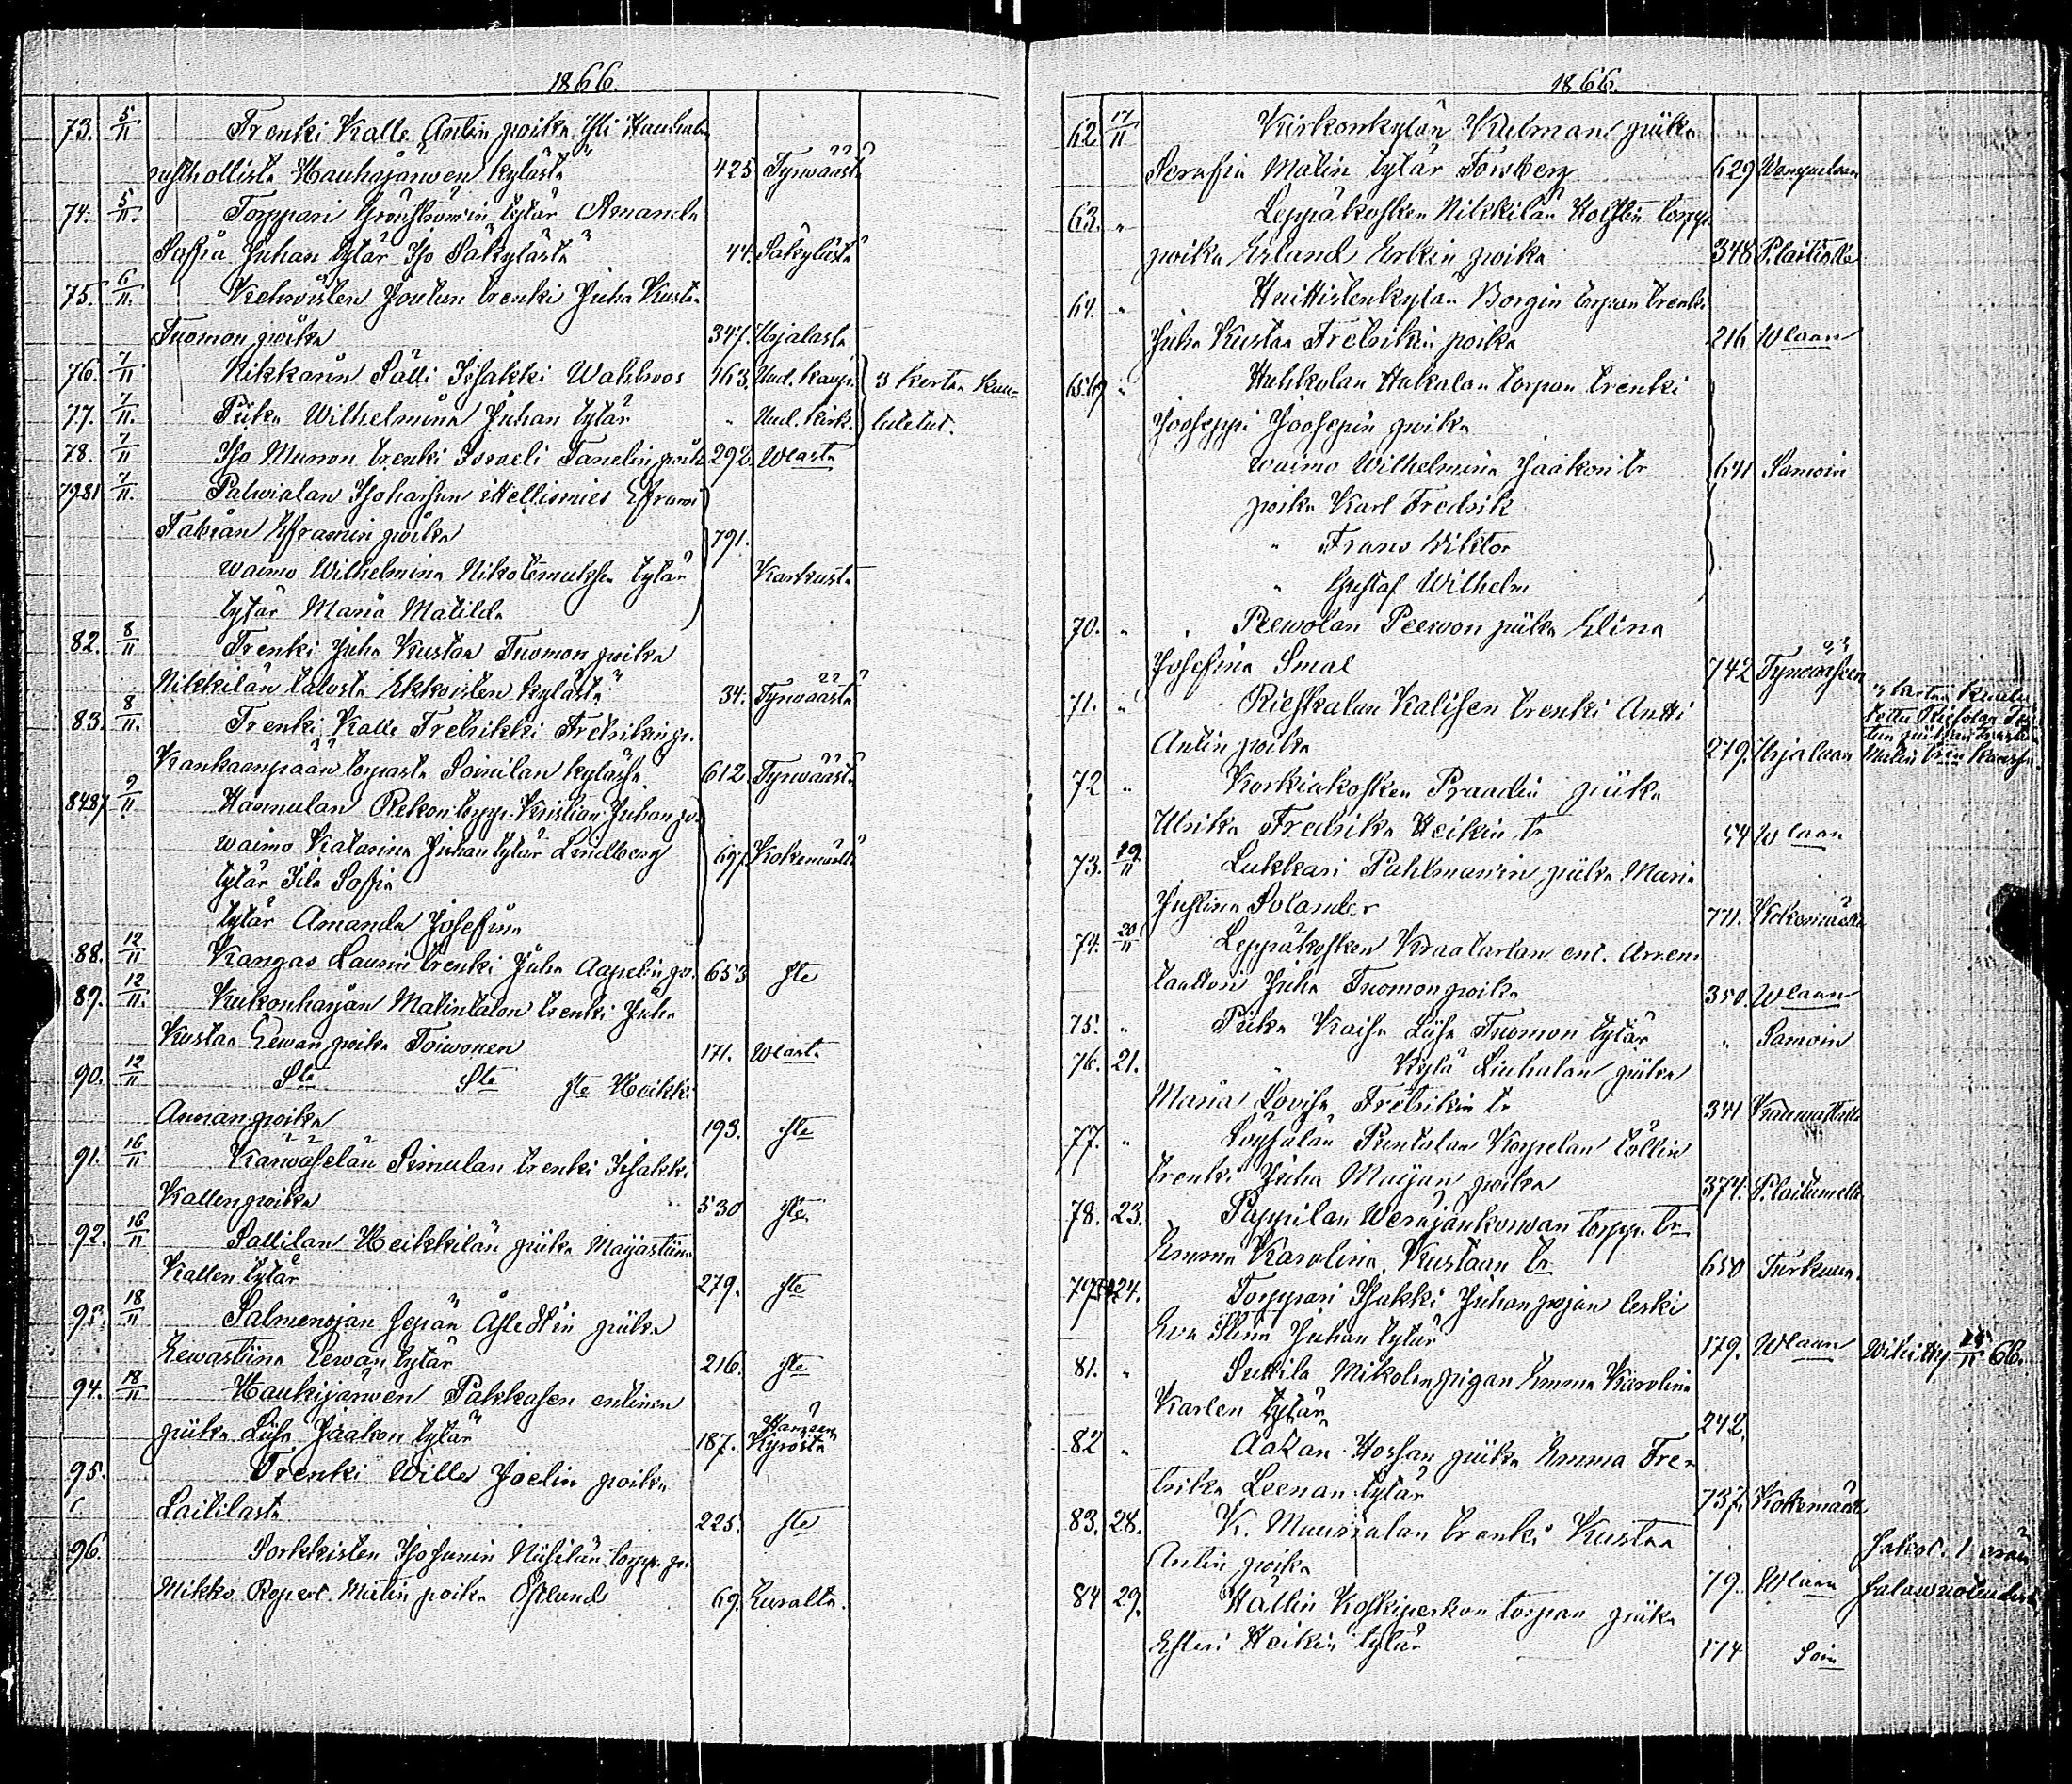 1866.
73. 5/11 Trenki Kalle Antin poika Yli Hauhalan
rusthollista Hauhajärwen kylästä 425 Tyrwäästä
74. 5/11. Torppari Grönströmin tytär Amanda
Soffia Juhan tytär Iso Säkylästä 44. Säkylästä
75. 6/11. Kehwoisten Joutun trenki Juha Kusta
Tuomon poika 347. Urjalasta
76. 7/11 Nikkarin Sälli Isakki Wahlroos 463. Uud. kaup. 3 kertaa kuu=
77. 7/11. Piika Wilhelmina Juhan tytär " Uud. kirk. lutetut.
78. 7/11 Iso Murron trenki Israeli Tanelin poika 292. Wlasta
79 81 7/11. Palwialan Isoharsun itsellismies Eframi
Fabian Eframin poika 791.
waimo Wilhelmina Nikotemuksen tytär Karkusta
tytär Maria Matilda
82. 8/11 Trenki Juha Kustaa Tuomon poika
Nikkilän talosta Ekkoisten kylästä 34. Tyrwäästä
83. 8/11. Trenki Kalle Fredrikki Fredrikin p.
Kankaanpään torpasta Soinilan kylässä 612. Tyrwäästä
84 87 9/11. Haamulan Rekon torpp. Kristian Juhan po.
waimo Katarina Juhan tytär Lindberg 697. Kokemäeltä
tytär Ida Sofia
tytär Amanda Josefina
88. 12/11 Kangas Laurin trenki Juha Aapelin po. 653 ste
89. 12/11. Kukonharjan Matintalon trenki Juha
Kustaa Eewan poika Toiwonen 171. Wlasta
90. 12/11 Ste Ste ste Heikki
Annan poika 193. ste
91. 16/11 Karwaselän Simulan trenki Isakki
Kallen poika 530 ste.
92. 16/11 Sallilan Heikkilän piika Maijastiina
Kallen tytär 279. ste
93. 18/11 Salmenojan sepän Åstedt'in piika
Eewastiina Eewan tytär 216. ste
94. 18/11 Haukijärwen Pakkasen entinen
piika Liisa Jaakon tytär 187. Hameen Kyröstä
95. Trenki Wille Joelin poika
Laitilasta 225. ste
96. Sorkkisten Isosunin Niisilän torpp. po.
Mikko Ropert Matin poika Östlund 69. Euralta.
1866.
62 17/11 Kirkonkylän Kulmani piika
Serafia Matin tytär Forsberg 629 Wampulaan
63. " Leppäkosken Nikkilän Holstin torpp.
poika Erland Erkin poika 348 P. laitiolle
64. " Huittistenkylän Borgin torpan trenki
Juha Kustaa Fredrikin poika 216 Wlaan
65 69 " Huhkolan Hakalan torpan trenki
Jooseppi Joosepin poika
waimo Wilhelmina Jaakon tr 641 Samoin
poika Karl Fredrik
" Frans Wiktor
" Gustaf Wilhelm
70. " Peewolan Peewon piika Elina
Josefina Smal 742 Tyrwääseen
71. " Rieskalan Kalisen trenki Antti
Antin poika 279. Urjalaan
72 " Korkiakosken Praadin piika
Ulrika Fredrika Heikin tr 54 Wlaan
73. 19/11 Lukkari Pahlmanin piika Maria
Justina Solander 771. Kokemäelle
74. 20/11 Leppäkosken Kraatarlan ent. Arren
taattori Juha Tuomon poika 350. Wlaan
75. " Piika Kaisa Liisa Tuomon tytär " Samoin
76. 21. " Kylä Liuhulan piika
Maria Lovisa Fredrikin tr 341 Kauwattalle
77. " Löysälän Pentalan Korpelan töllin
trenki Juha Maijan poika 374. P. laitumelle
78. 23. Pappilan Weräjänkorwan torpp. tr
Emma Karolina Kustaan tr 650 Turkuun.
79 80 24. Torppari Isakki Juhan pojan leski
Ewa Stina Juhan tytär 179. Wlaan Wihitty 25/11 66.
81. " Suttila Mikolan pigan Emma Karolina
Karlen tytär 242.
82 " Aatan Hossan piika Emma Fre=
trika Leenan tytär 737. Kokemäelle
83. 28. K. Maurialan trenki Kustaa
Antin poika 79. Wlaan
84 29. Hällin Koskiperkon torpan piika
Esteri Heikin tytär 174 Soin